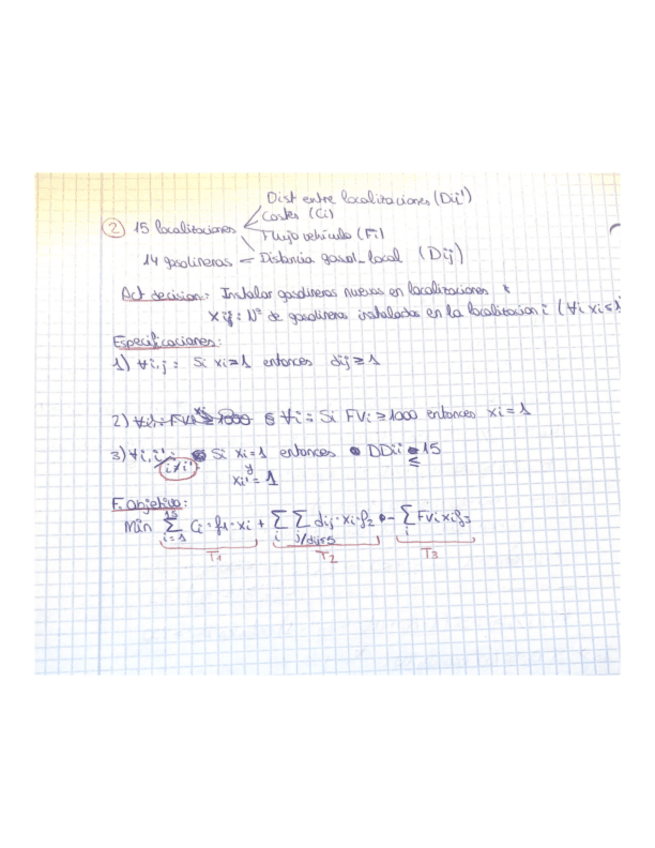 Dist entre localizaciones (Dii')
② 15 localizaciones Costes (Ci)
Flujo vehículo (Fi)
14 gasolineras = Distancia gasol-local (Dij)
Act decision: Instalar gasolineras nuevas en localizaciones
Xij: Nº de gasolineras instaladas en la localizacion i (∀i xi≤1)
Especificaciones:
1) ∀i,j : Si xi=1 entonces dij ≥ 1
2) ∀i : Si FVi ≥ 1000 entonces xi = 1
3) ∀i,i' : Si xi=1 entonces DDii' ≤ 15
i≠i' y
xi' = 1
F. objetivo:
Min ∑ i=1 15 Ci · f1 · xi + ∑ i ∑ j/dij≤5 dij · xi · f2 - ∑ i FVi xi f3
T1 T2 T3